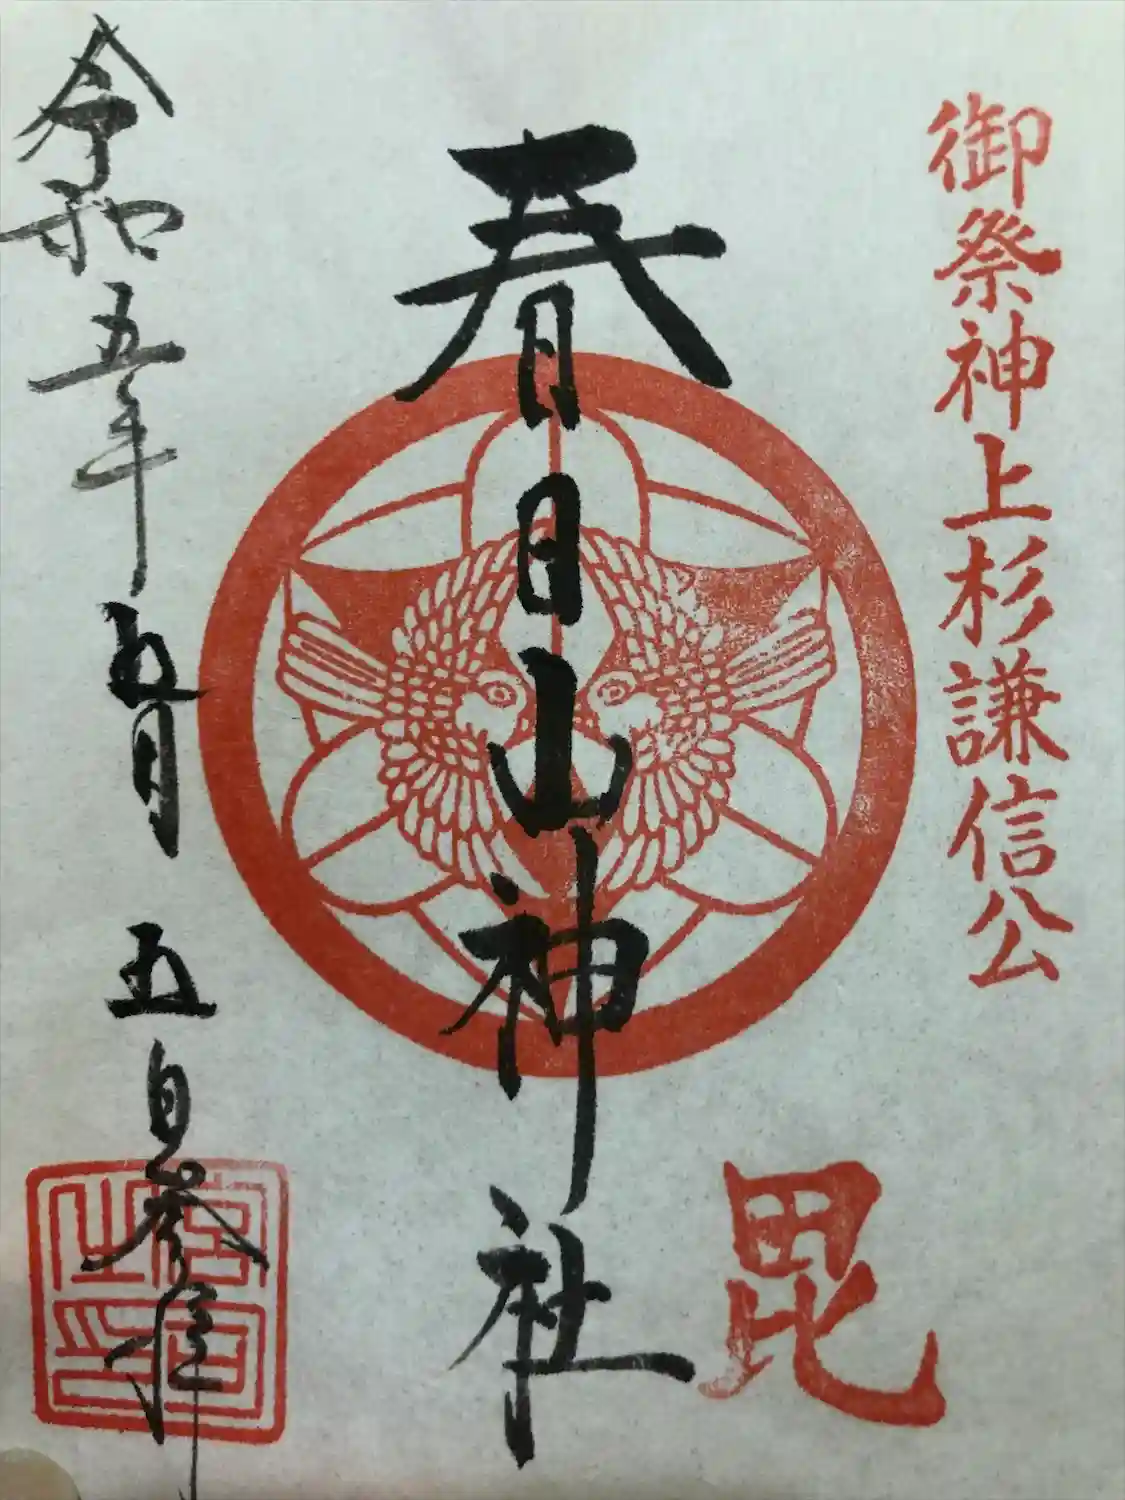 御祭神上杉謙信公
毘
春日山神社
令和五年五月五日参拝
宮司之印